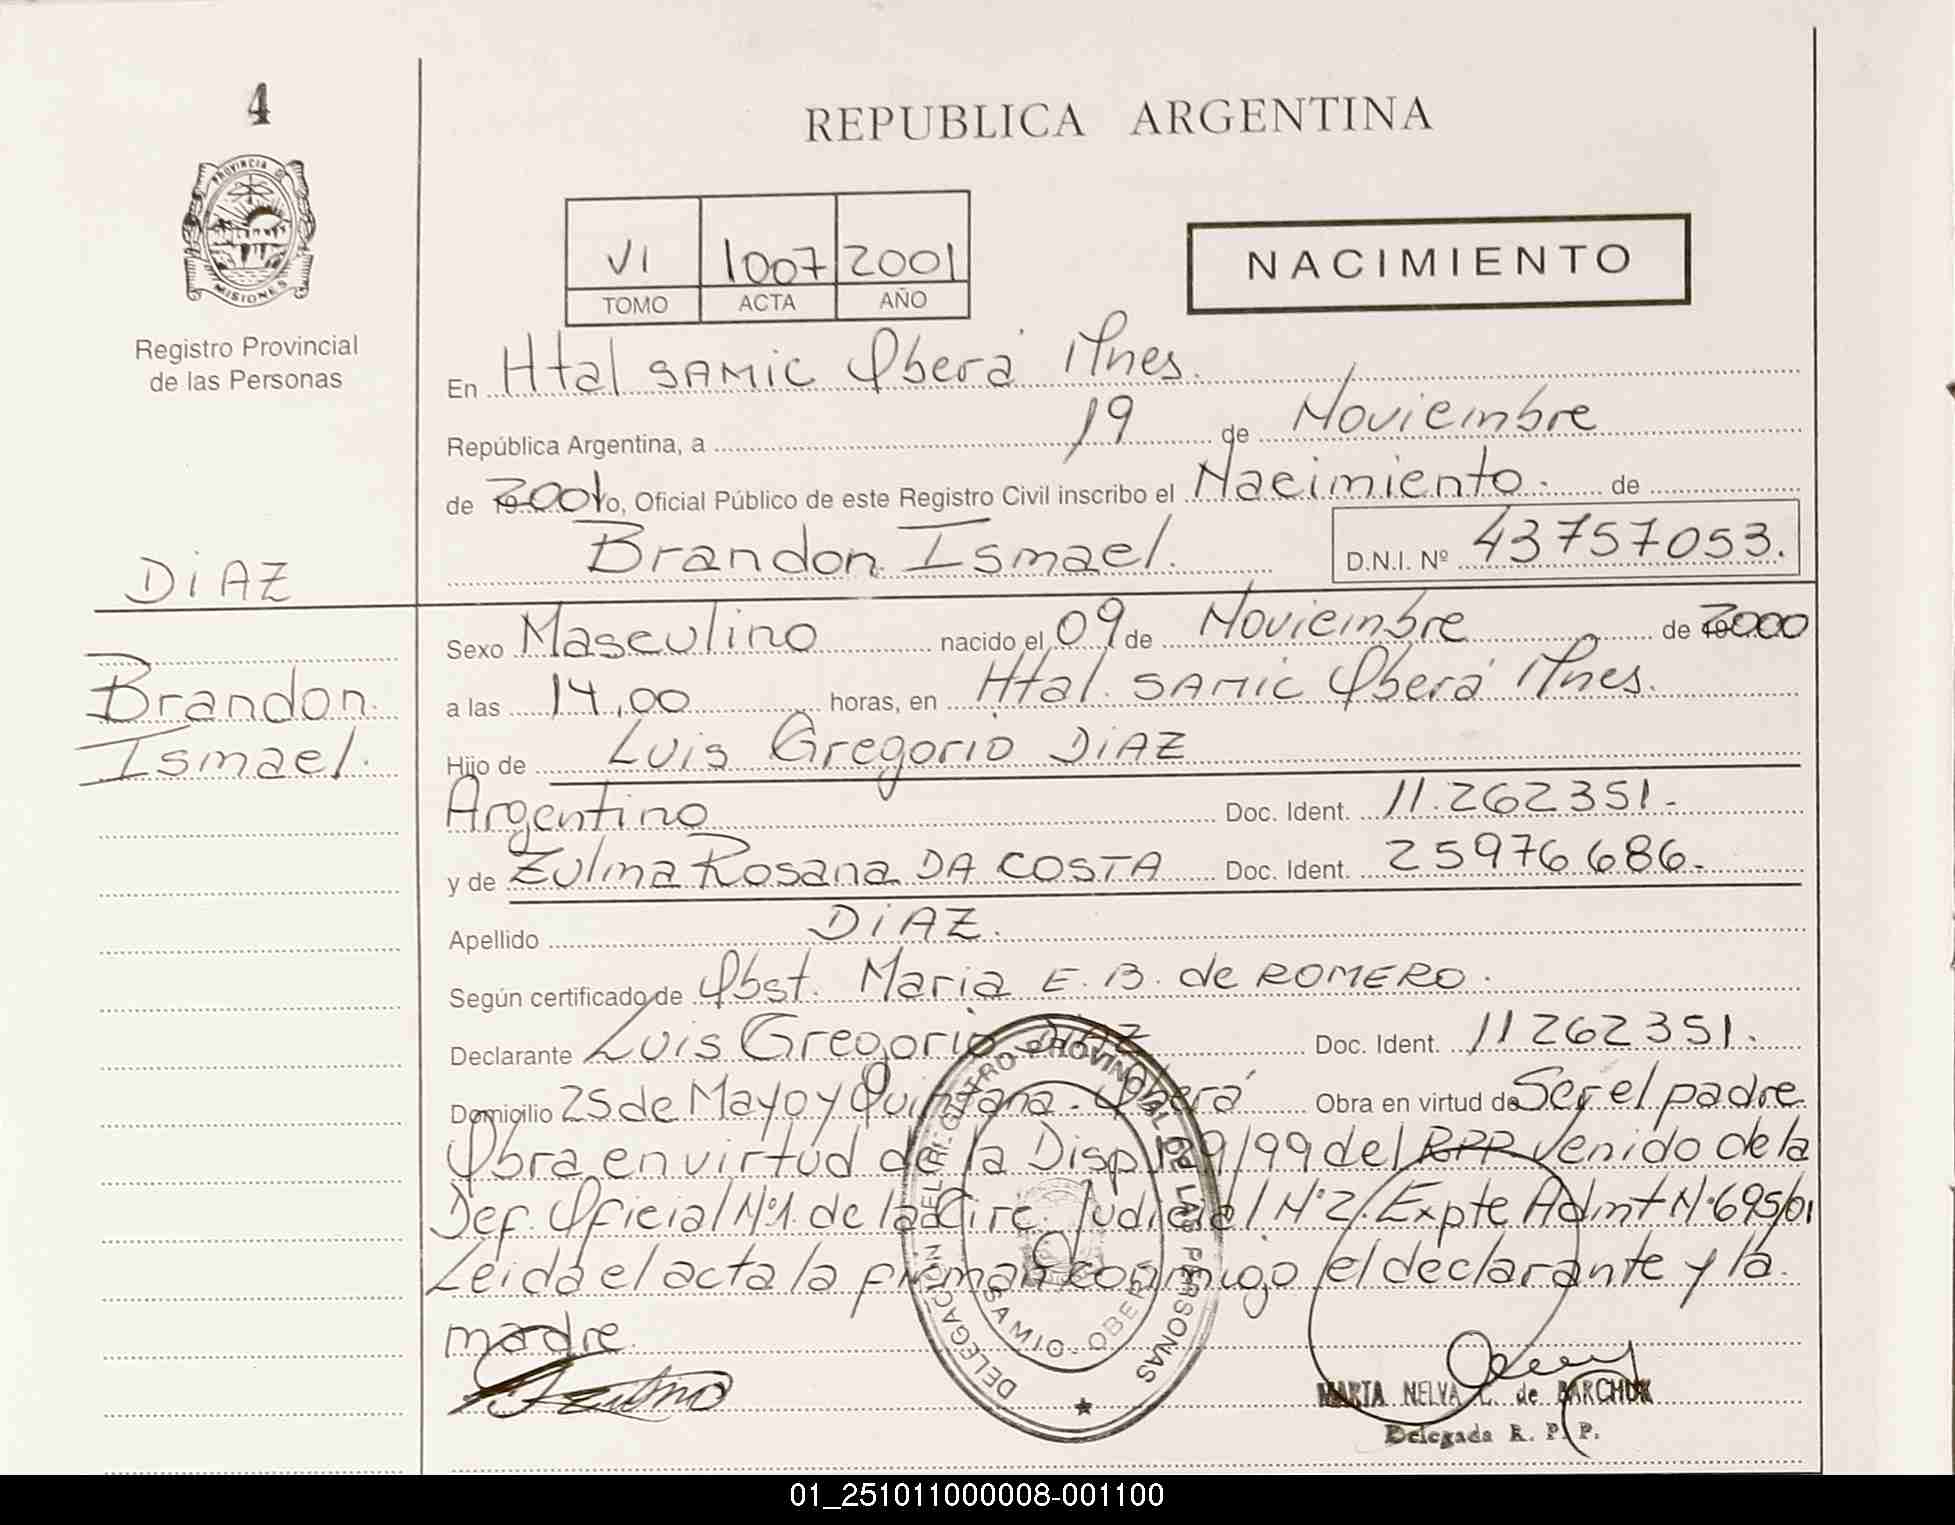 4
REPUBLICA ARGENTINA
PROVINCIA DE
MISIONES
Registro Provincial
de las Personas
VI 1007 2001
TOMO ACTA AÑO
NACIMIENTO
En Htal SAMIC Oberá Mnes.
República Argentina, a 19 de Noviembre
de 2001 yo, Oficial Público de este Registro Civil inscribo el Nacimiento. de
Brandon Ismael. D.N.I. Nº 43757053.
DiAZ
Brandon
Ismael.
Sexo Masculino nacido el 09 de Noviembre de 2000
a las 14,00 horas, en Htal. SAMIC Oberá Mnes.
Hijo de Luis Gregorio DiAZ
Argentino Doc. Ident. 11.262351.-
y de Zulma Rosana DA COSTA Doc. Ident. 25976686.-
Apellido DiAZ.
Según certificado de Obst. Maria E. B. de ROMERO.
Declarante Luis Gregorio DiAZ Doc. Ident. 11262351.
Domicilio 25 de Mayo y Quintana. Oberá Obra en virtud de Ser el padre.
Obra en virtud de la Disp. 29/99 del RPP venido de la
Def. Oficial Nº1. de la Circ. Judicial Nº2. Expte Admt Nº695/01
Leida el acta la firman conmigo el declarante y la
madre.
DELEGACION DEL REGISTRO PROVINCIAL DE LAS PERSONAS
SAMIC - OBERA
MARTA NELVA C. de BARCHUK
Delegada R. P. P.
01_251011000008-001100